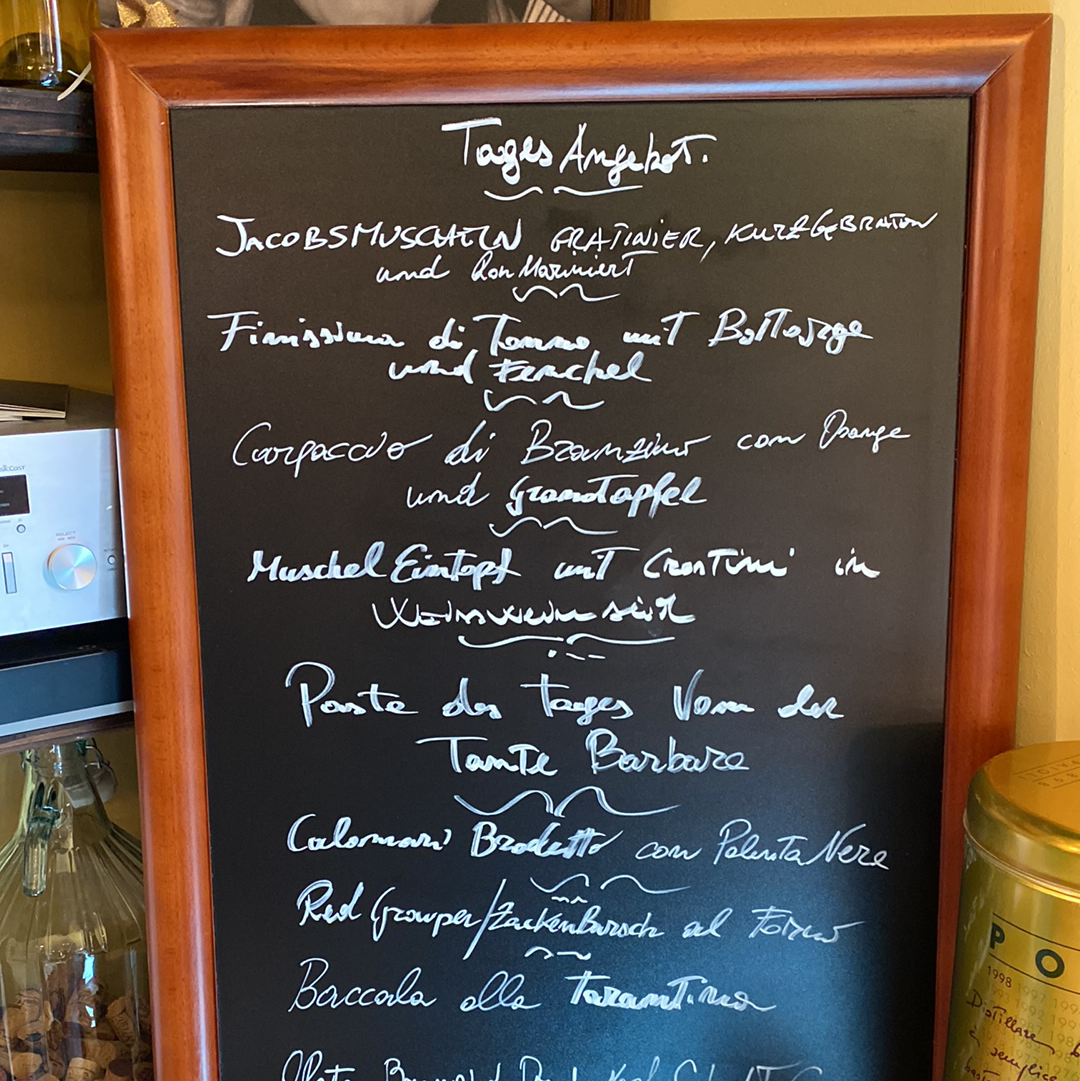 Tages Angebot.
JACOBSMUSCHELN GRATINIER, KURZGEBRATEN
und Roh Mariniert
Finissima di Tonno mit Bottarga
und Fenchel
Carpaccio di Branzino con Orange
und Granatapfel
Muschel Eintopf mit Crostini in
Paste des tages Von der
Tante Barbara
Calamari Brodetto con Polenta Nera
Red Grouper/Zackenbarsch al Forno
Baccala alla Tarantina
PO
1998 1997
Distillare
è semplice
SELECT